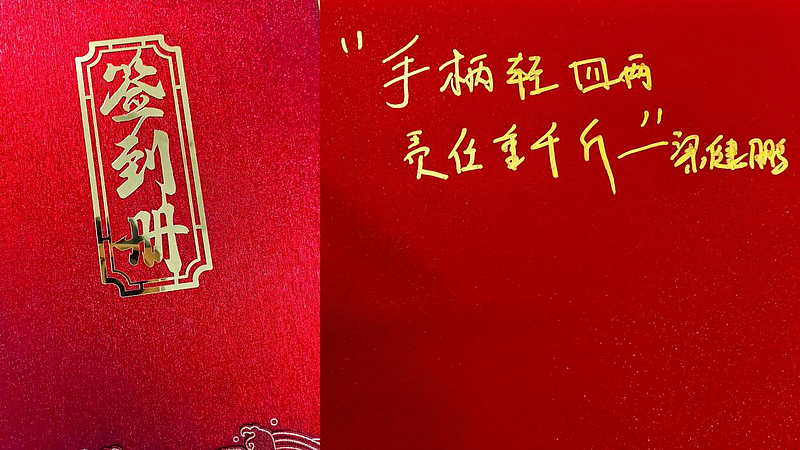 签到册
"手柄轻四两
责任重千斤"—梁健鹏